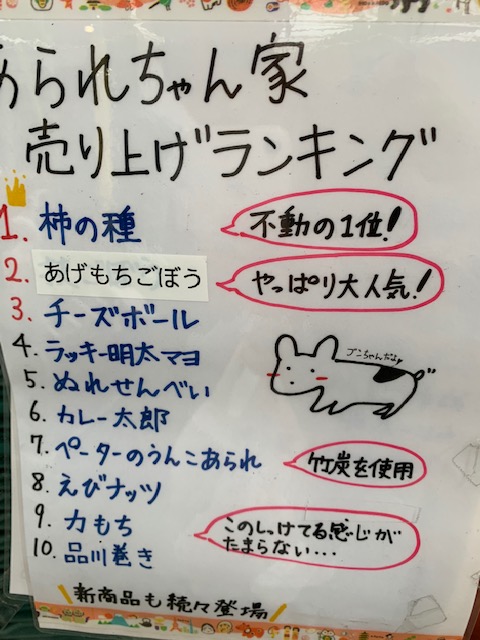 あられちゃん家
売り上げランキング
1. 柿の種
不動の1位!
2. あげもちごぼう
やっぱり大人気!
3. チーズボール
4. ラッキー明太マヨ
ブンちゃんだよ
5. ぬれせんべい
6. カレー太郎
7. ペーターのうんこあられ
竹炭を使用
8. えびナッツ
9. 力もち
10. 品川巻き
このしっけてる感じが
たまらない...
新商品も続々登場